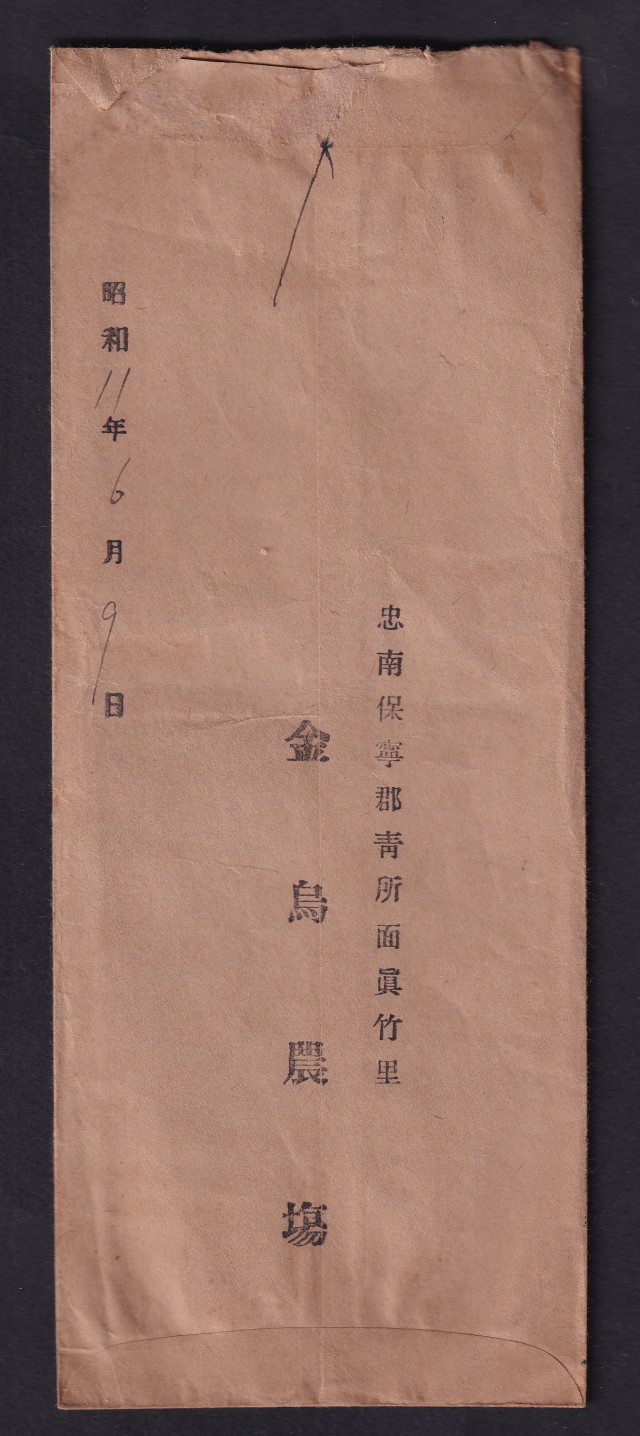 忠南保寧郡靑所面眞竹里
金烏農場
昭和11年6月9日